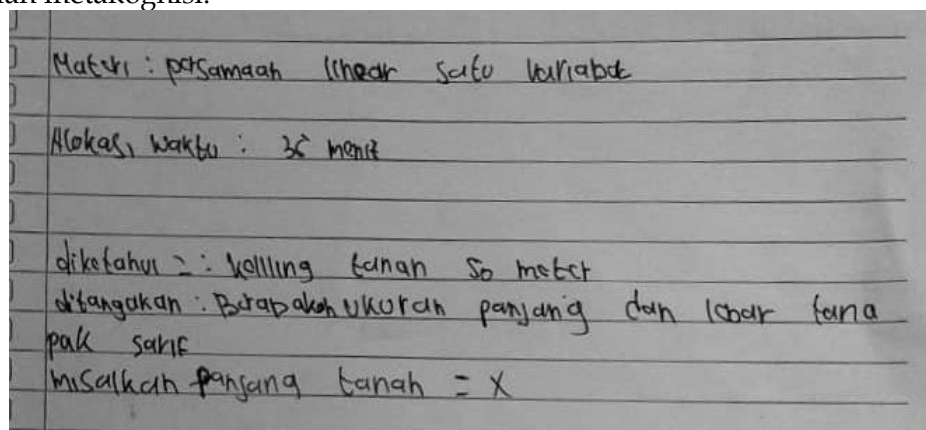 dan metakognisi.
Materi : persamaan linear satu variabel
Alokasi waktu : 35 menit
diketahui = : keliling tanah 50 meter
ditanyakan : Berapakah ukuran panjang dan lebar tana
pak sarif
misalkan panjang tanah = x